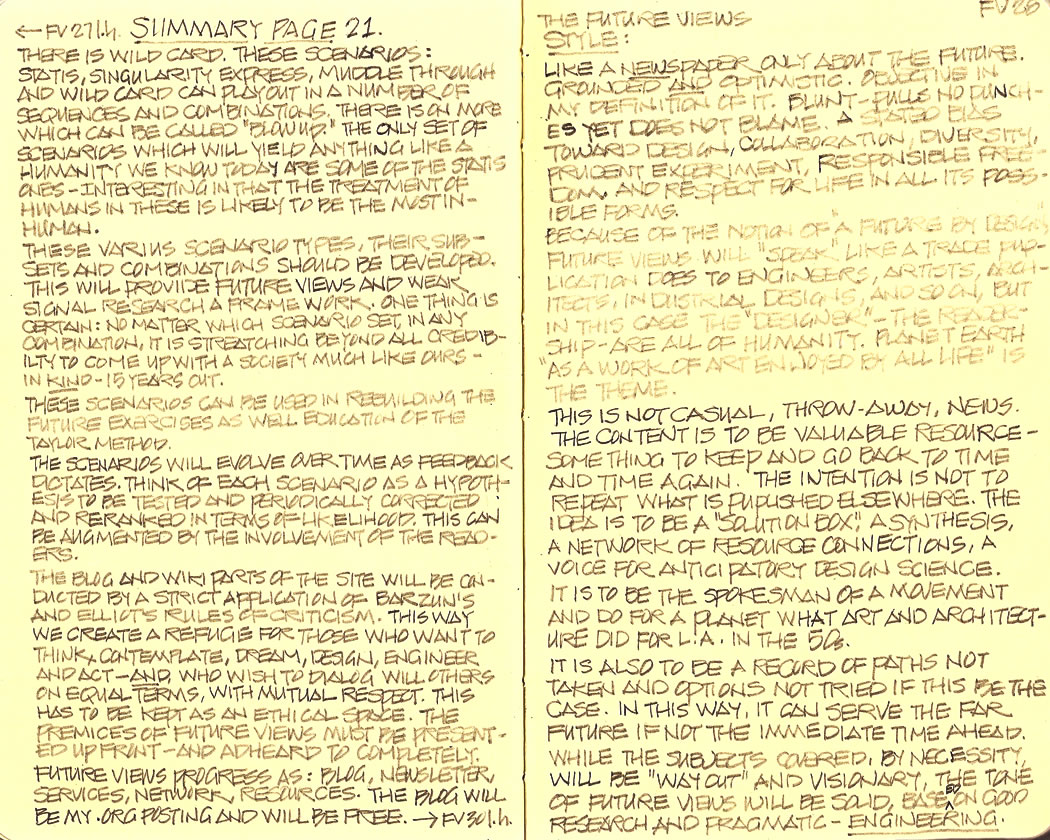 ←FV27l.h. SUMMARY PAGE 21.
THERE IS WILD CARD. THESE SCENARIOS:
STATIS, SINGULARITY EXPRESS, MUDDLE THROUGH
AND WILD CARD CAN PLAY OUT IN A NUMBER OF
SEQUENCES AND COMBINATIONS. THERE IS ON MORE
WHICH CAN BE CALLED "BLOW UP." THE ONLY SET OF
SCENARIOS WHICH WILL YIELD ANYTHING LIKE A
HUMANITY WE KNOW TODAY ARE SOME OF THE STATIS
ONES - INTERESTING IN THAT THE TREATMENT OF
HUMANS IN THESE IS LIKELY TO BE THE MOST IN-
HUMAN.
THESE VARIUS SCENARIO TYPES, THEIR SUB-
SETS AND COMBINATIONS SHOULD BE DEVELOPED.
THIS WILL PROVIDE FUTURE VIEWS AND WEAK
SIGNAL RESEARCH A FRAME WORK. ONE THING IS
CERTAIN: NO MATTER WHICH SCENARIO SET, IN ANY
COMBINATION, IT IS STREATCHING BEYOND ALL CREDIB-
ILTY TO COME UP WITH A SOCIETY MUCH LIKE OURS -
IN KIND - 15 YEARS OUT.
THESE SCENARIOS CAN BE USED IN REBUILDING THE
FUTURE EXERCISES AS WELL EDUCATION OF THE
TAYLOR METHOD.
THE SCENARIOS WILL EVOLVE OVER TIME AS FEEDBACK
DICTATES. THINK OF EACH SCENARIO AS A HYPOTH-
ESIS TO BE TESTED AND PERIODICALLY CORRECTED
AND RERANKED IN TERMS OF LIKELIHOOD. THIS CAN
BE AUGMENTED BY THE INVOLVEMENT OF THE READ-
ERS.
THE BLOG AND WIKI PARTS OF THE SITE WILL BE CON-
DUCTED BY A STRICT APPLICATION OF BARZUN'S
AND ELLIOT'S RULES OF CRITICISM. THIS WAY
WE CREATE A REFUGIE FOR THOSE WHO WANT TO
THINK, CONTEMPLATE, DREAM, DESIGN, ENGINEER
AND ACT - AND, WHO WISH TO DIALOG WILL OTHERS
ON EQUAL TERMS, WITH MUTUAL RESPECT. THIS
HAS TO BE KEPT AS AN ETHICAL SPACE. THE
PREMICES OF FUTURE VIEWS MUST BE PRESENT-
ED UP FRONT - AND ADHEARD TO COMPLETELY.
FUTURE VIEWS PROGRESS AS: BLOG, NEWSLETTER,
SERVICES, NETWORK, RESOURCES. THE BLOG WILL
BE MY .ORG POSTING AND WILL BE FREE. →FV30l.h.
THE FUTURE VIEWS
STYLE:
LIKE A NEWSPADER ONLY ABOUT THE FUTURE.
GROUNDED AND OPTIMISTIC. OBJECTIVE IN
MY DEFINITION OF IT. BLUNT - PULLS NO PUNCH-
ES YET DOES NOT BLAME. A STATED BIAS
TOWARD DESIGN, COLLABORATION, DIVERSITY,
PRUDENT EXPERIMENT, RESPONSIBLE FREE-
DOM, AND RESPECT FOR LIFE IN ALL ITS POSS-
IBLE FORMS.
BECAUSE OF THE NOTION OF "A FUTURE BY DESIGN"
FUTURE VIEWS WILL "SPEAK" LIKE A TRADE PUB-
LICATION DOES TO ENGINEERS, ARTISTS, ARCH-
ITECTS, INDUSTRIAL DESIGNS, AND SO ON, BUT
IN THIS CASE THE "DESIGNER" - THE READER-
SHIP - ARE ALL OF HUMANITY. PLANET EARTH
"AS A WORK OF ART ENJOYED BY ALL LIFE" IS
THE THEME.
THIS IS NOT CASUAL, THROW-AWAY, NEWS.
THE CONTENT IS TO BE VALUABLE RESOURCE -
SOMETHING TO KEEP AND GO BACK TO TIME
AND TIME AGAIN. THE INTENTION IS NOT TO
REPEAT WHAT IS PUPLISHED ELSEWHERE. THE
IDEA IS TO BE A "SOLUTION BOX", A SYNTHESIS,
A NETWORK OF RESOURCE CONNECTIONS, A
VOICE FOR ANTICIPATORY DESIGN SCIENCE.
IT IS TO BE THE SPOKESMAN OF A MOVEMENT
AND DO FOR A PLANET WHAT ART AND ARCHITECT-
URE DID FOR L.A. IN THE 50s.
IT IS ALSO TO BE A RECORD OF PATHS NOT
TAKEN AND OPTIONS NOT TRIED IF THIS BE THE
CASE. IN THIS WAY, IT CAN SERVE THE FAR
FUTURE IF NOT THE IMMEDIATE TIME AHEAD.
WHILE THE SUBJECTS COVERED, BY NECESSITY,
WILL BE "WAY OUT" AND VISIONARY, THE TONE
OF FUTURE VIEWS WILL BE SOLID, BASED ON GOOD
RESEARCH AND PRAGMATIC - ENGINEERING.